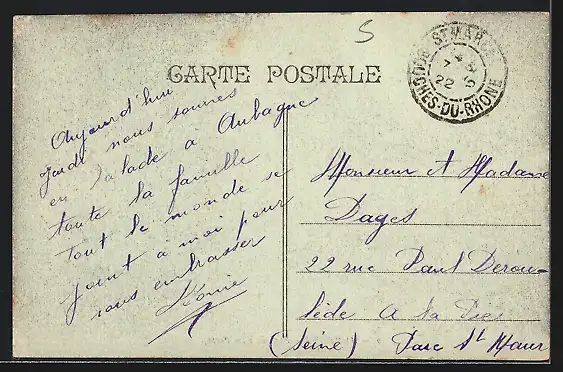 5
CARTE POSTALE
ST MAR
BOUCHES-DU-RHONE
22
Aujourd'hui
Jeudi nous sommes
en balade a Aubagne
toute la famille
Tout le monde se
joint à moi pour
vous embrasser
Léonie
Monsieur et Madame
Dages
22 rue Paul Derou-
lède A la Pie
(Seine) Parc St Maur